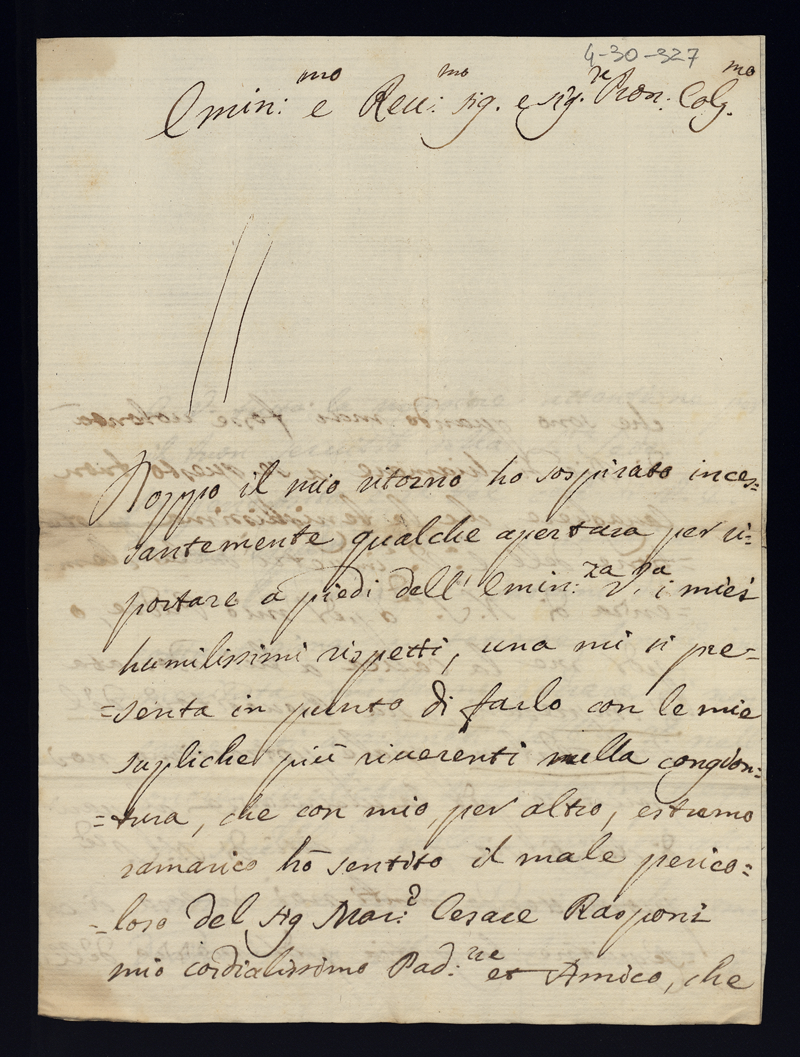 4-30-327
Emin:mo e Reu:mo sig. e sig.re Pron: Colg.mo
Doppo il mio ritorno ho sospirato inces=
santemente qualche apertura per ri=
portare a piedi dell' Emin:za Va i miei
humilissimi rispetti, una mi si pre=
=senta in punto di farlo con le mie
supliche più riuerenti nella congion=
=tura, che con mio, per altro, estremo
ramarico hò sentito il male perico=
=loso del sig Mar:e Cesare Rasponi
mio cordialissimo Pad:ne et Amico, che